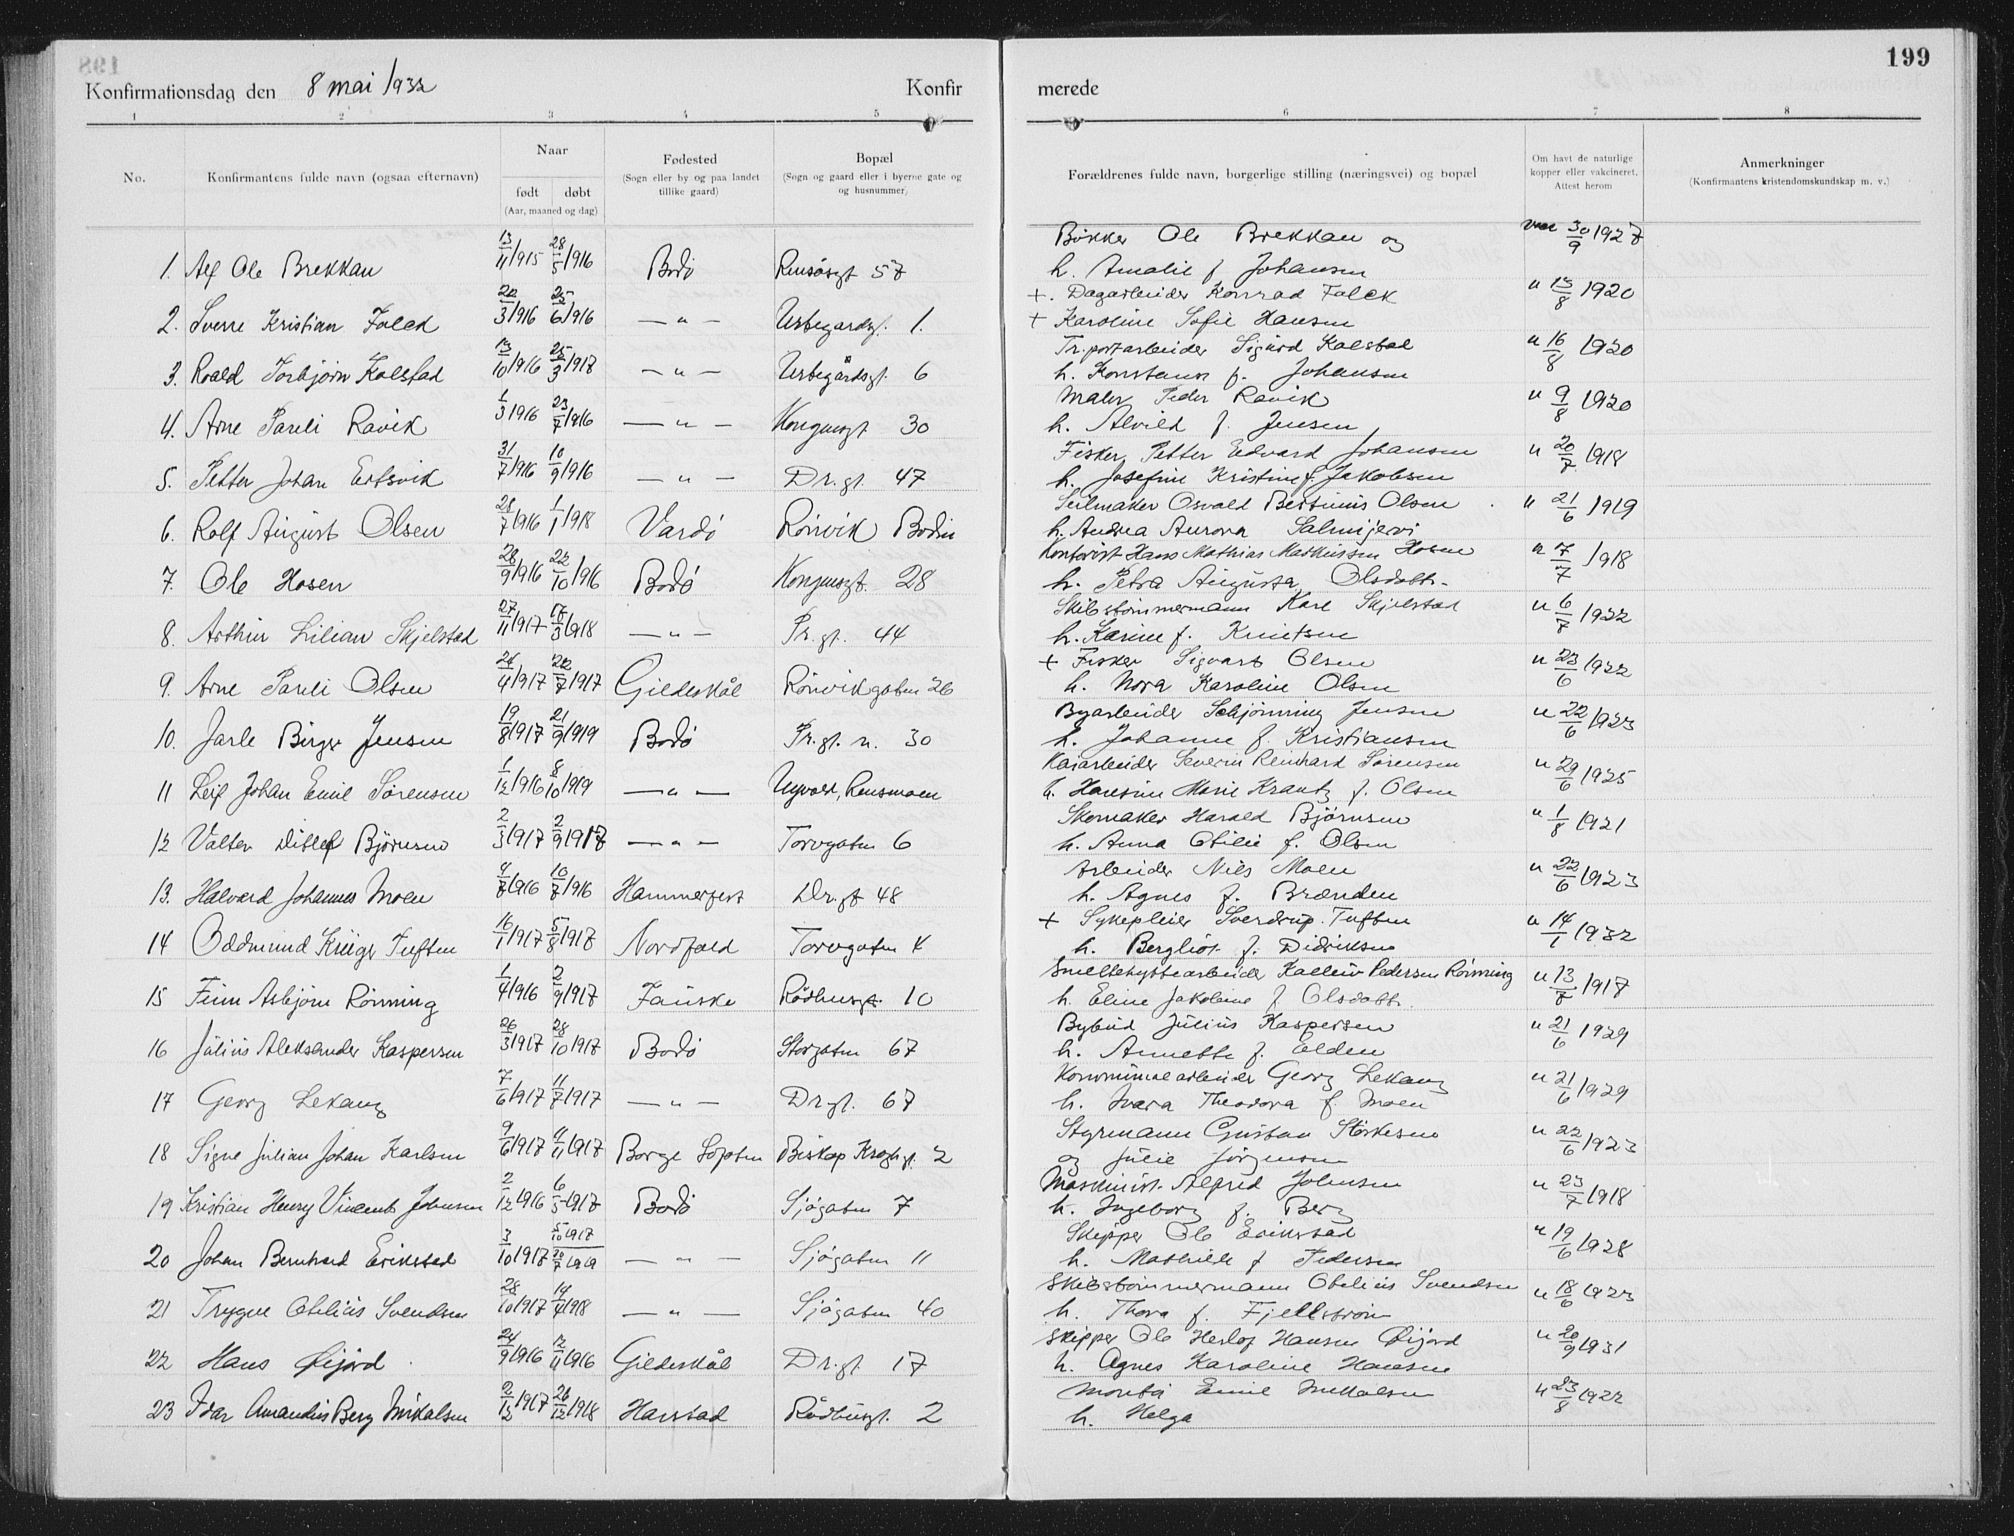 199
Konfirmationsdag den 8 mai 1932 Konfir merede
1 2 3 4 5 6 7 8
No. Konfirmantens fulde navn (ogsaa efternavn) Naar født døbt (Aar, maaned og dag) Fødested (Sogn eller by og paa landet tillike gaard) Bopæl (Sogn og gaard eller i byerne gate og og husnummer) Forældrenes fulde navn, borgerlige stilling (næringsvei) og bopæl Om havt de naturlige kopper eller vakcineret. Attest herom Anmerkninger (Konfirmantens kristendomskundskap m. v.)
Bøkker Ole Brekkan og vac 30/9 1927
1. Alf Ole Brekkan 13/11 1915 28/5 1916 Bodö Rensåsgt 57 h. Amalie f. Johansen
+ Dagarbeider Konrad Falck " 13/8 1920
2. Sverre Kristian Falck 22/3 1916 25/6 1916 — " — 1. + Karoline Sofie Hansen
Tr.portarbeider Sigurd Kolstad " 16/8 1920
3. Roald Torbjörn Kolstad 13/10 1916 25/3 1917 — " — 6 h. Konstanse f. Johansen
Maler Peder Ravik " 9/8 1920
4. Arne Pareli Ravik 1/3 1916 23/7 1916 — " — Kongensgt 30 h. Alvild f. Jensen
Fisker Petter Edvard Johansen " 20/7 1918
5. Petter Johan Ertsvik 31/7 1916 10/9 1916 — " — Dr.gt 47 h. Josefine Kristine f. Jakobsen
Seilmaker Osvald Bertinius Olsen " 21/6 1919
6. Rolf August Olsen 28/7 1916 1/1 1918 Vardö Rönvik Bodin h. Andrea Aurora Salmijervi
Kontorist Hans Mathias Markussen Hosen " 7/7 1918
7. Ole Hosen 28/9 1916 22/10 1916 Bodö Kongensgt. 28 h. Petra Augusta Olsdatt.
Skibstömmermann Karl Skjelstad " 6/7 1922
8. Arthur Lilian Skjelstad 27/11 1917 17/3 1918 — " — Pr.gt. 44 h. Karine f. Knutsen
+ Fisker Sigvart Olsen " 23/6 1922
9. Arne Pareli Olsen 24/4 1917 22/7 1917 Gildeskål Rönvikgaten 26 h. Nora Karoline Olsen
Byarbeider Schjönning Jensen " 22/6 1923
10. Jarle Birger Jensen 19/8 1917 21/9 1919 Bodö Pr.gt. n. 30 h. Johanne f. Kristiansen
Kaiarbeider Severin Reinhard Sörensen " 29/6 1925
11 Leif Johan Emil Sörensen 1/12 1916 8/10 1919 — " — h. Hansine Marie Krantz f. Olsen
Skomaker Harald Björnsen " 1/8 1921
12 Valter Ditlef Björnsen 2/3 1917 2/9 1917 — " — Torvgaten 6 h. Anna Otilie f. Olsen
Arbeider Nils Moen " 22/6 1923
13. Halvard Johannes Moen 4/8 1916 16/7 1916 Hammerfest Dr.gt 48 h. Agnes f. Brænden
+ Sykepleier Sverdrup Tuften " 14/1 1932
14 Oddmund Krüger Tuften 16/1 1917 5/8 1917 Nordfold Torvgaten 4 h. Bergliot f. Didriksen
Smeltehyttearbeider Kallein Pedersen Rönning " 13/7 1917
15 Finn Asbjörn Rönning 1/4 1916 2/9 1917 Fauske Rådhusgt. 10 h. Eline Jakobine f. Olsdatt.
Bybud Julius Kaspersen " 21/6 1929
16 Julius Aleksander Kaspersen 26/3 1917 28/10 1917 Bodö Storgaten 67 h. Annette f. Elden
Kommunearbeider Georg Lekang " 21/6 1929
17 Georg Lekang 7/6 1917 11/7 1917 — " — Dr.gt. 67 h. Theodora f. Moen
Styrmann Gustav Störkesen " 22/6 1923
18 Signe Julian Johan Karlsen 9/6 1917 4/11 1917 Borge Lofoten Biskop Kroghsgt. 2 og Julie Jörgensen
Maskinist Alfred Johnsen " 23/7 1918
19 Kristian Henry Vincent Johnsen 2/12 1916 6/5 1917 Bodö Sjøgaten 7 h. Ingeborg f. Berg
5/10 1917 Skipper Ole Erikstad " 19/6 1928
20 Johan Bernhard Erikstad 3/10 1917 20/7 1919 — " — Sjøgaten 11 h. Mathilde f. Pedersen
Skibstömmermann Otelius Svendsen " 18/6 1923
21 Trygve Otelius Svendsen 28/10 1917 14/4 1918 — " — Sjøgaten 40 h. Thora f. Fjellström
Skipper Ole Herlof Hansen Øijord " 20/9 1931
22 Hans Øijord 24/9 1916 12/11 1916 Gildeskål Dr.gt 17 h. Agnes Karoline Hansen
Montör Emil Mikalsen " 23/8 1922
23 Ivar Amandus Berg Mikalsen 2/12 1917 26/12 1918 Harstad Rådhusgt. 2 h. Helga